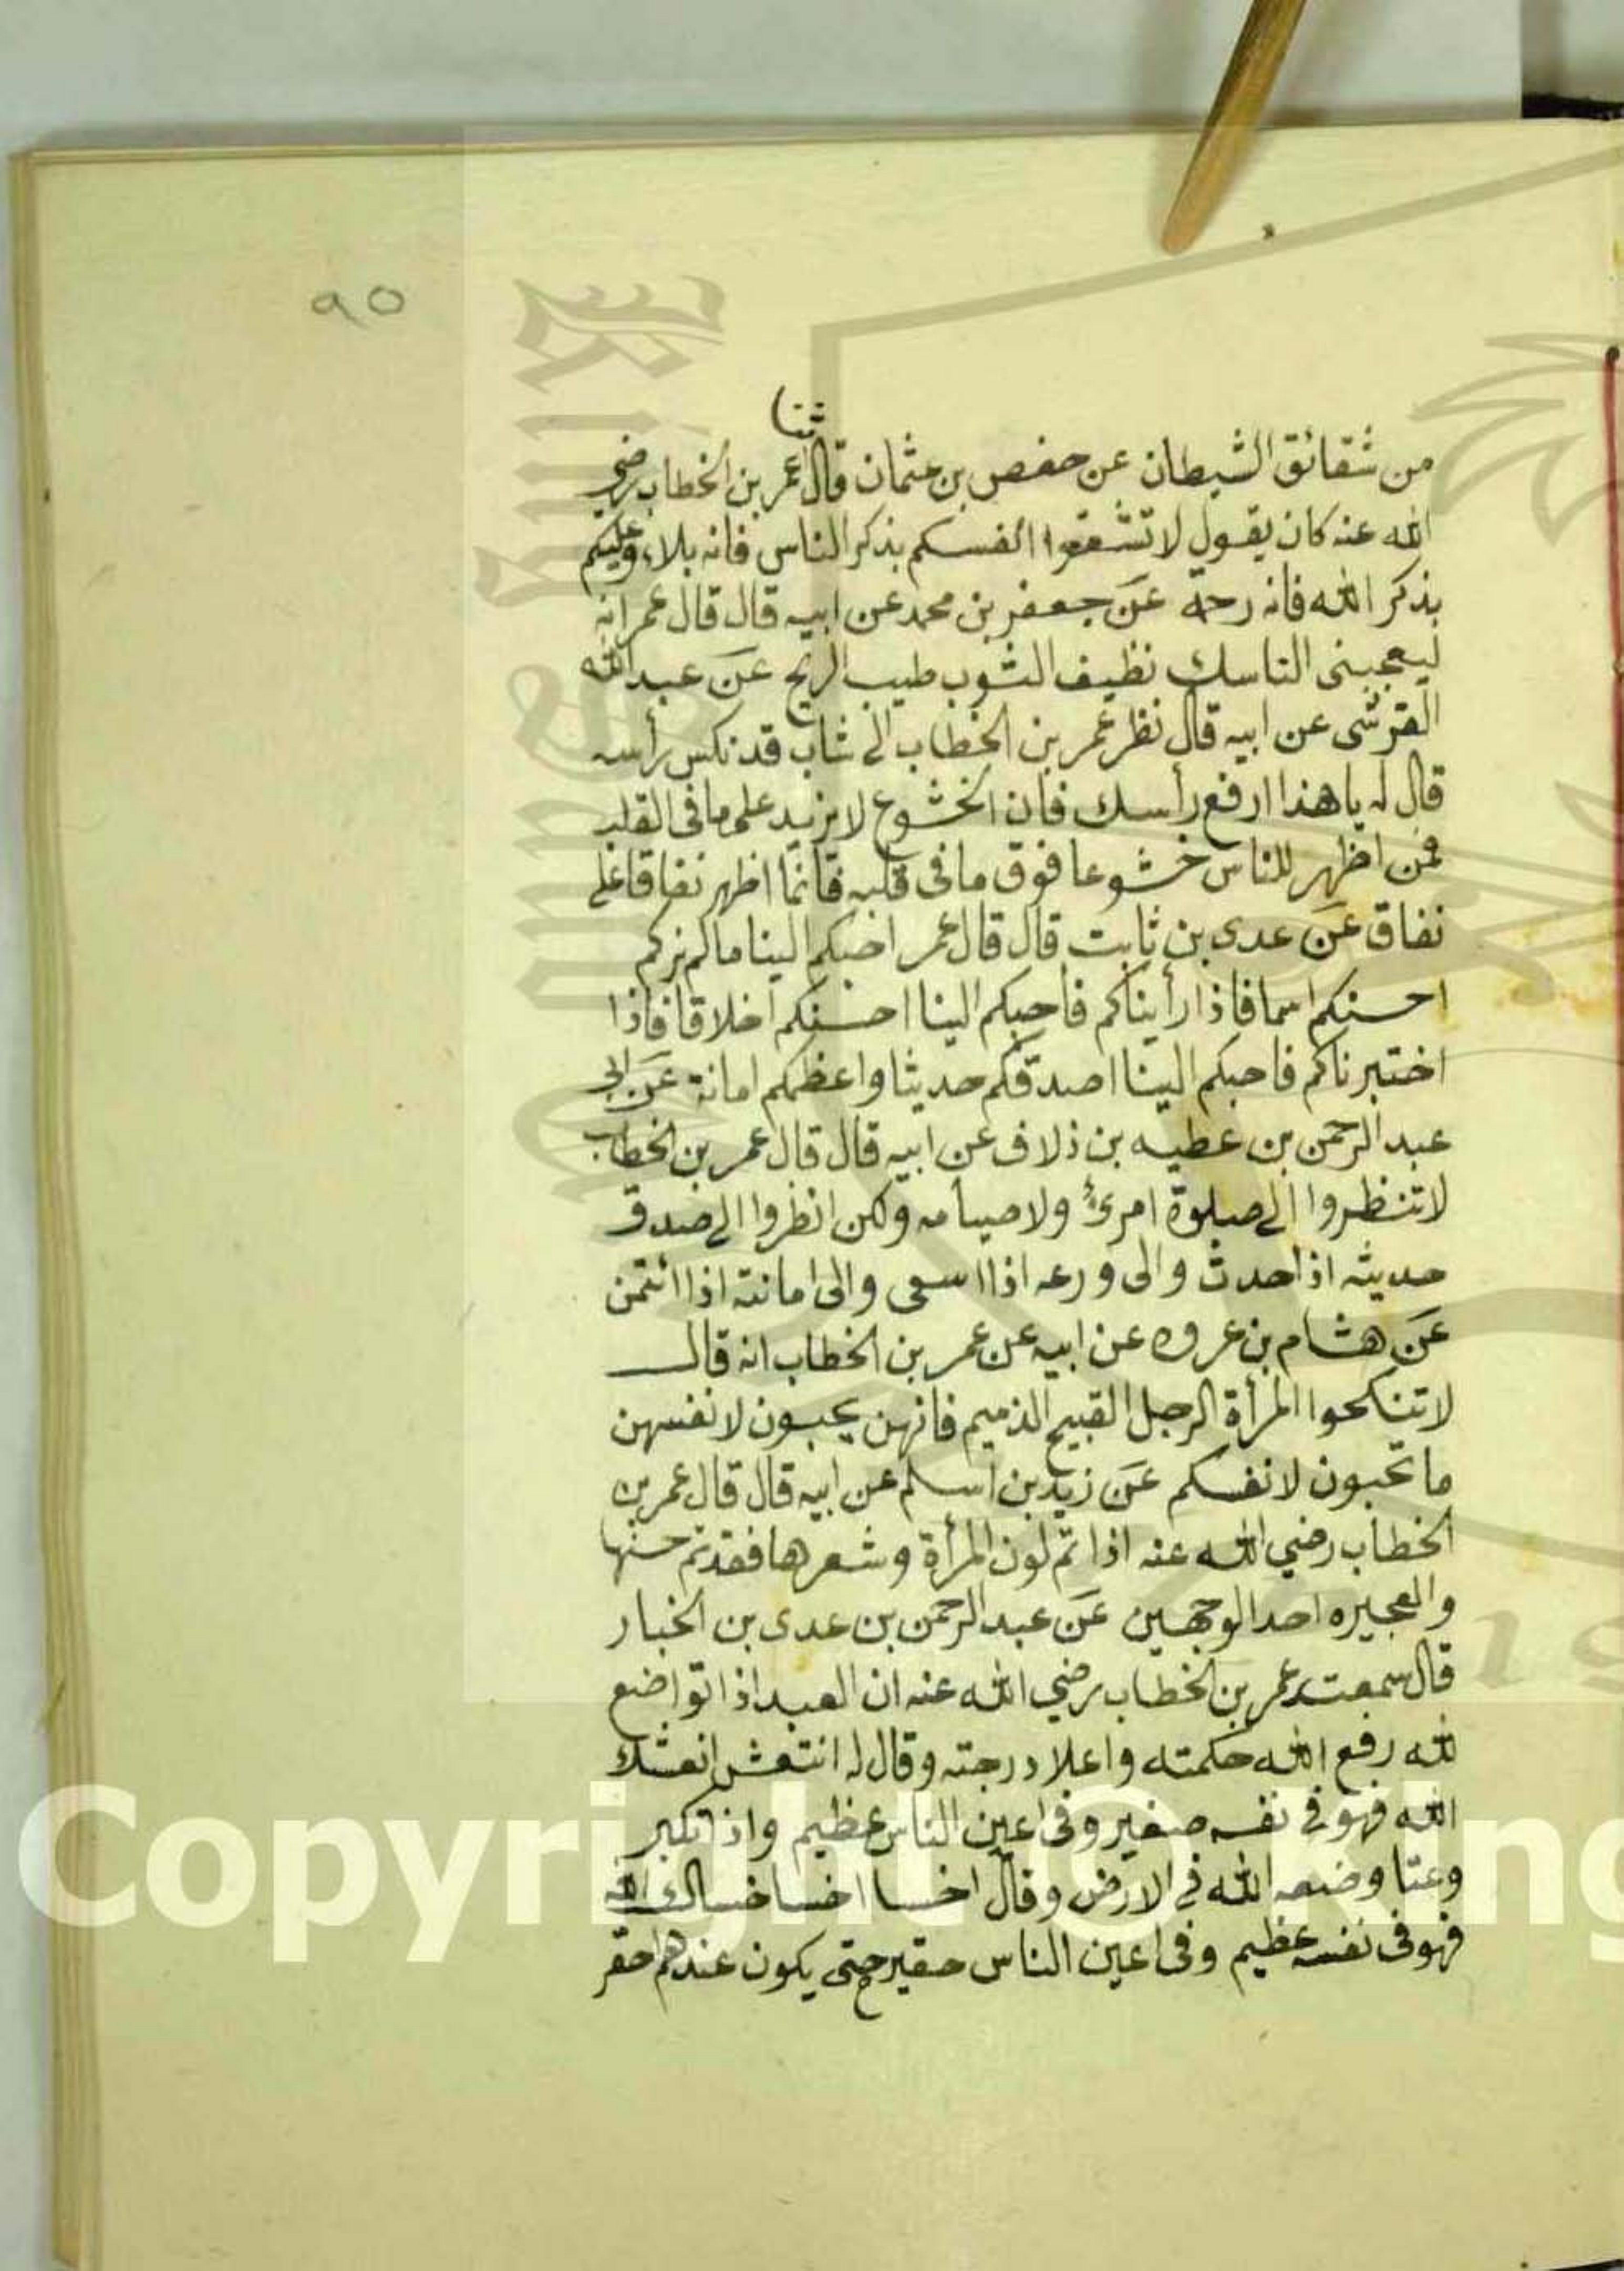 ٩٥
ثنا
من شقائق الشيطان عن حفص بن عثمان قال عمر بن الخطاب رضي
الله عنه كان يقول لا تشقعوا انفسكم بذكر الناس فانه بلاء وعليكم
بذكر الله فانه رحمة عن جعفر بن محمد عن ابيه قال قال عمر انه
ليعجبنى الناسك نظيف الثوب طيب الريح عن عبد الله
القرشى عن ابيه قال نظر عمر بن الخطاب الى شاب قد نكس رأسه
قال له يا هذا ارفع رأسك فان الخشوع لا يزيد على ما فى القلب
فمن اظهر للناس خشوعا فوق ما فى قلبه فانما اظهر نفاقا على
نفاق عن عدى بن ثابت قال قال عمر احبكم الينا ما لم نركم
احسنكم اسما فاذا رأيناكم فاحبكم الينا احسنكم اخلاقا فاذا
اختبرناكم فاحبكم الينا اصدقكم حديثا واعظمكم امانة عن ابى
عبد الرحمن بن عطيه بن دلاف عن ابيه قال قال عمر بن الخطاب
لا تنظروا الى صلوة امرئ ولا صيامه ولكن انظروا الى صدق
حديثه اذا حدث والى ورعه اذا اسعى والى امانته اذا ائتمن
عن هشام بن عروه عن ابيه عن عمر بن الخطاب انه قال
لا تنكحوا المرأة الرجل القبيح الذميم فانهن يحبون لانفسهن
ما تحبون لانفسكم عن زيد بن اسلم عن ابيه قال قال عمر بن
الخطاب رضي الله عنه اذا تم لون المرأة وشعرها فقد تم حسنها
والعجيره احد الوجهين عن عبد الرحمن بن عدى بن الخيار
قال سمعت عمر بن الخطاب رضي الله عنه ان العبد اذا تواضع
لله رفع الله حكمته واعلا درجته وقال له انتعش انعشك
الله فهو فى نفسه صغير وفى اعين الناس عظيم واذا تكبر
وعتا وضعه الله فى الارض وقال اخسا اخسا خساك الله
فهو فى نفسه عظيم وفى اعين الناس حقير حتى يكون عندهم احقر
Copyright © King